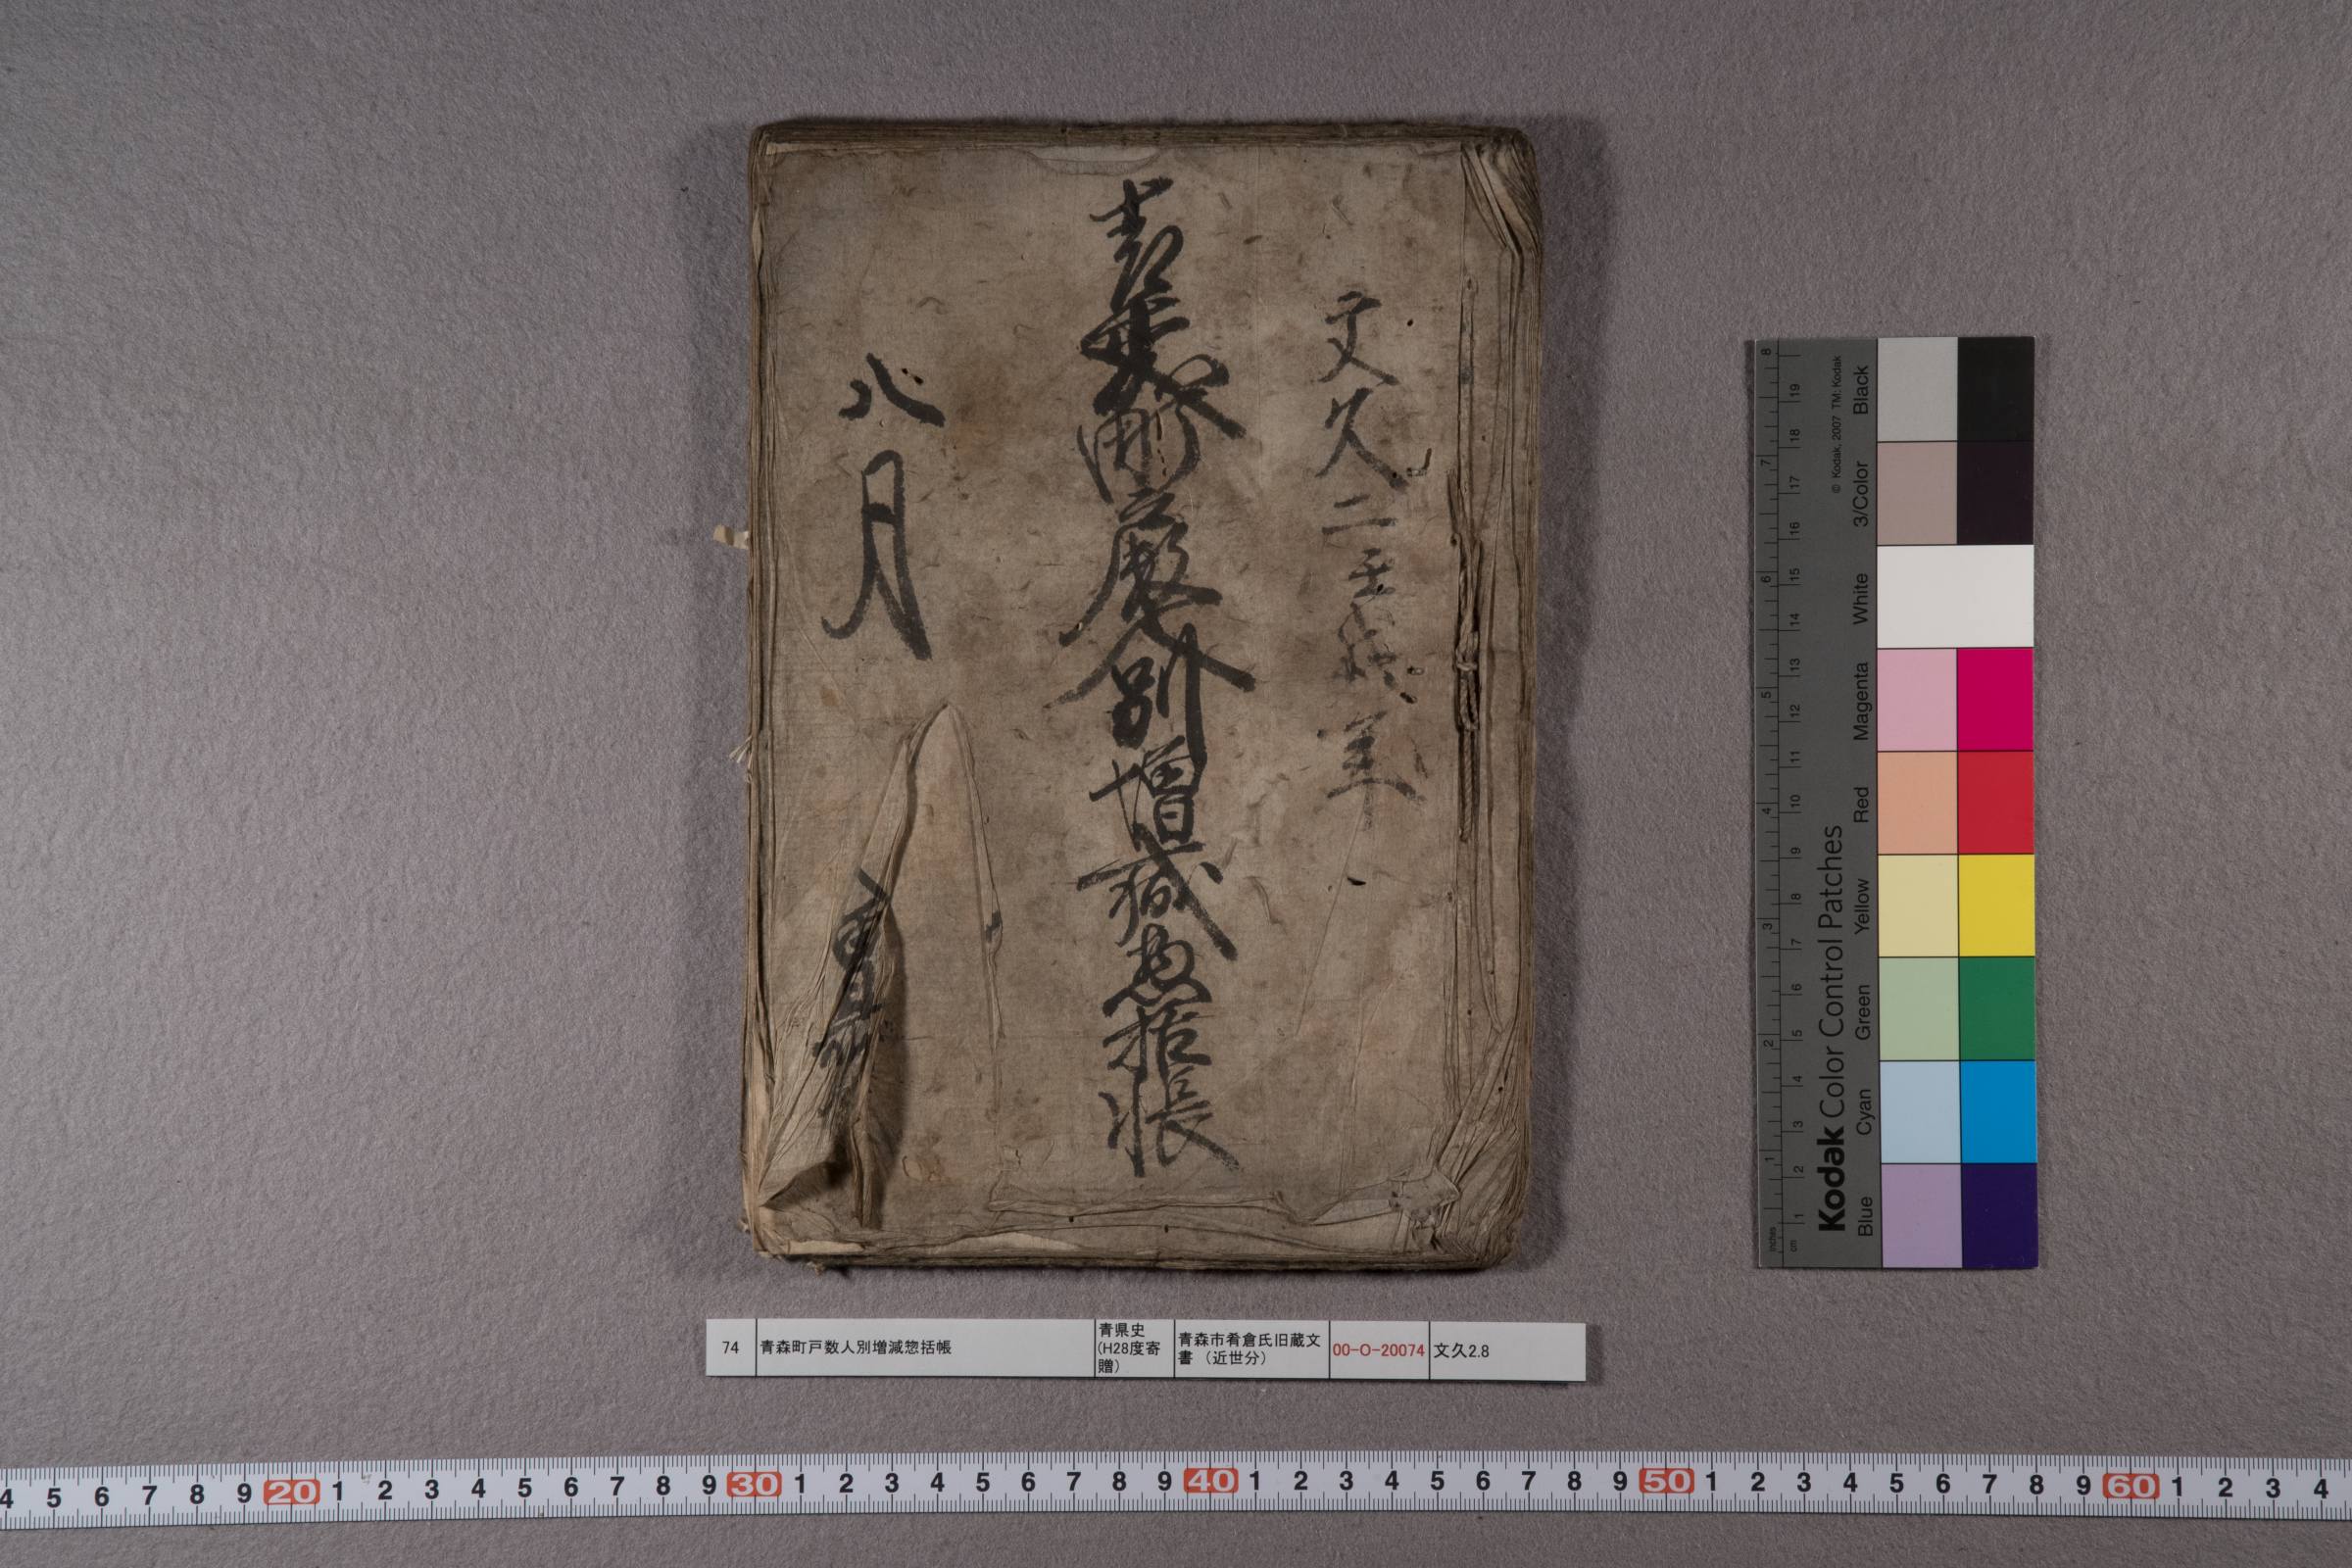 文久二壬戌年
青森町戸数人別増減惣括帳
八月
74
青森町戸数人別増減惣括帳
青県史
(H28度寄
贈)
青森市肴倉氏旧蔵文
書 （近世分）
00-O-20074
文久2.8
© Kodak, 2007 TM: Kodak
Kodak Color Control Patches
Black
3/Color
White
Magenta
Red
Yellow
Green
Cyan
Blue
inches 1 2 3 4 5 6 7 8
cm 1 2 3 4 5 6 7 8 9 10 11 12 13 14 15 16 17 18 19
4 5 6 7 8 9 20 1 2 3 4 5 6 7 8 9 30 1 2 3 4 5 6 7 8 9 40 1 2 3 4 5 6 7 8 9 50 1 2 3 4 5 6 7 8 9 60 1 2 3 4